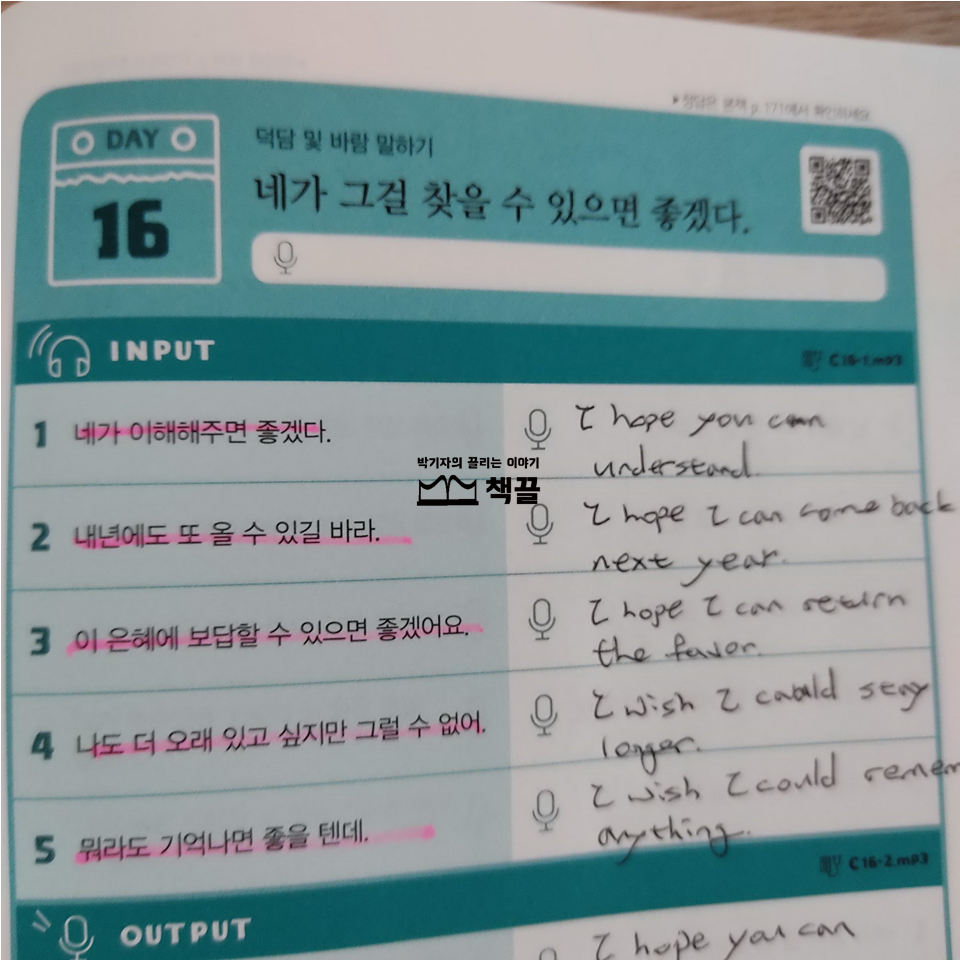 ▶정답은 본책 p.171에서 확인하세요
DAY
16
덕담 및 바람 말하기
네가 그걸 찾을 수 있으면 좋겠다.
INPUT
C16-1.mp3
1 네가 이해해주면 좋겠다.
I hope you can
understand.
박기자의 끌리는 이야기
책끌
2 내년에도 또 올 수 있길 바라.
I hope I can come back
next year.
3 이 은혜에 보답할 수 있으면 좋겠어요.
I hope I can return
the favor.
4 나도 더 오래 있고 싶지만 그럴 수 없어.
I wish I could stay
longer.
5 뭐라도 기억나면 좋을 텐데.
I wish I could remem
anything.
C16-2.mp3
OUTPUT
I hope you can